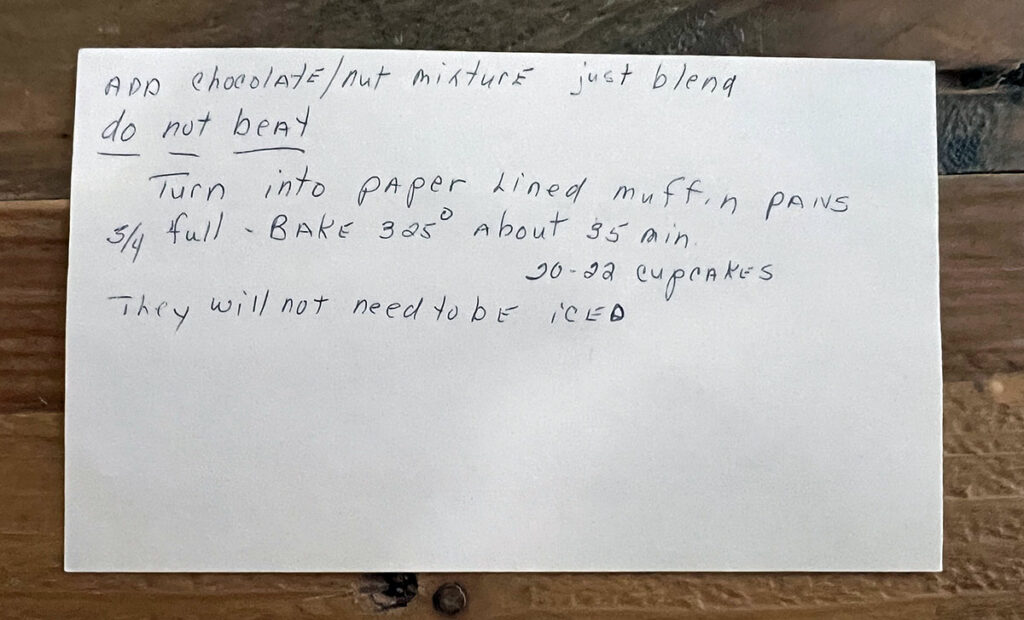 ADD chocolate/nut mixture just blend
do not beat
Turn into paper lined muffin pans
3/4 full - BAKE 325° About 35 min.
20-22 cupcakes
They will not need to be iced